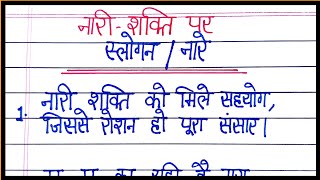 नारी-शक्ति पर
स्लोगन / नारे
1. नारी शक्ति को मिले सहयोग,
जिससे रोशन हो पूरा संसार।